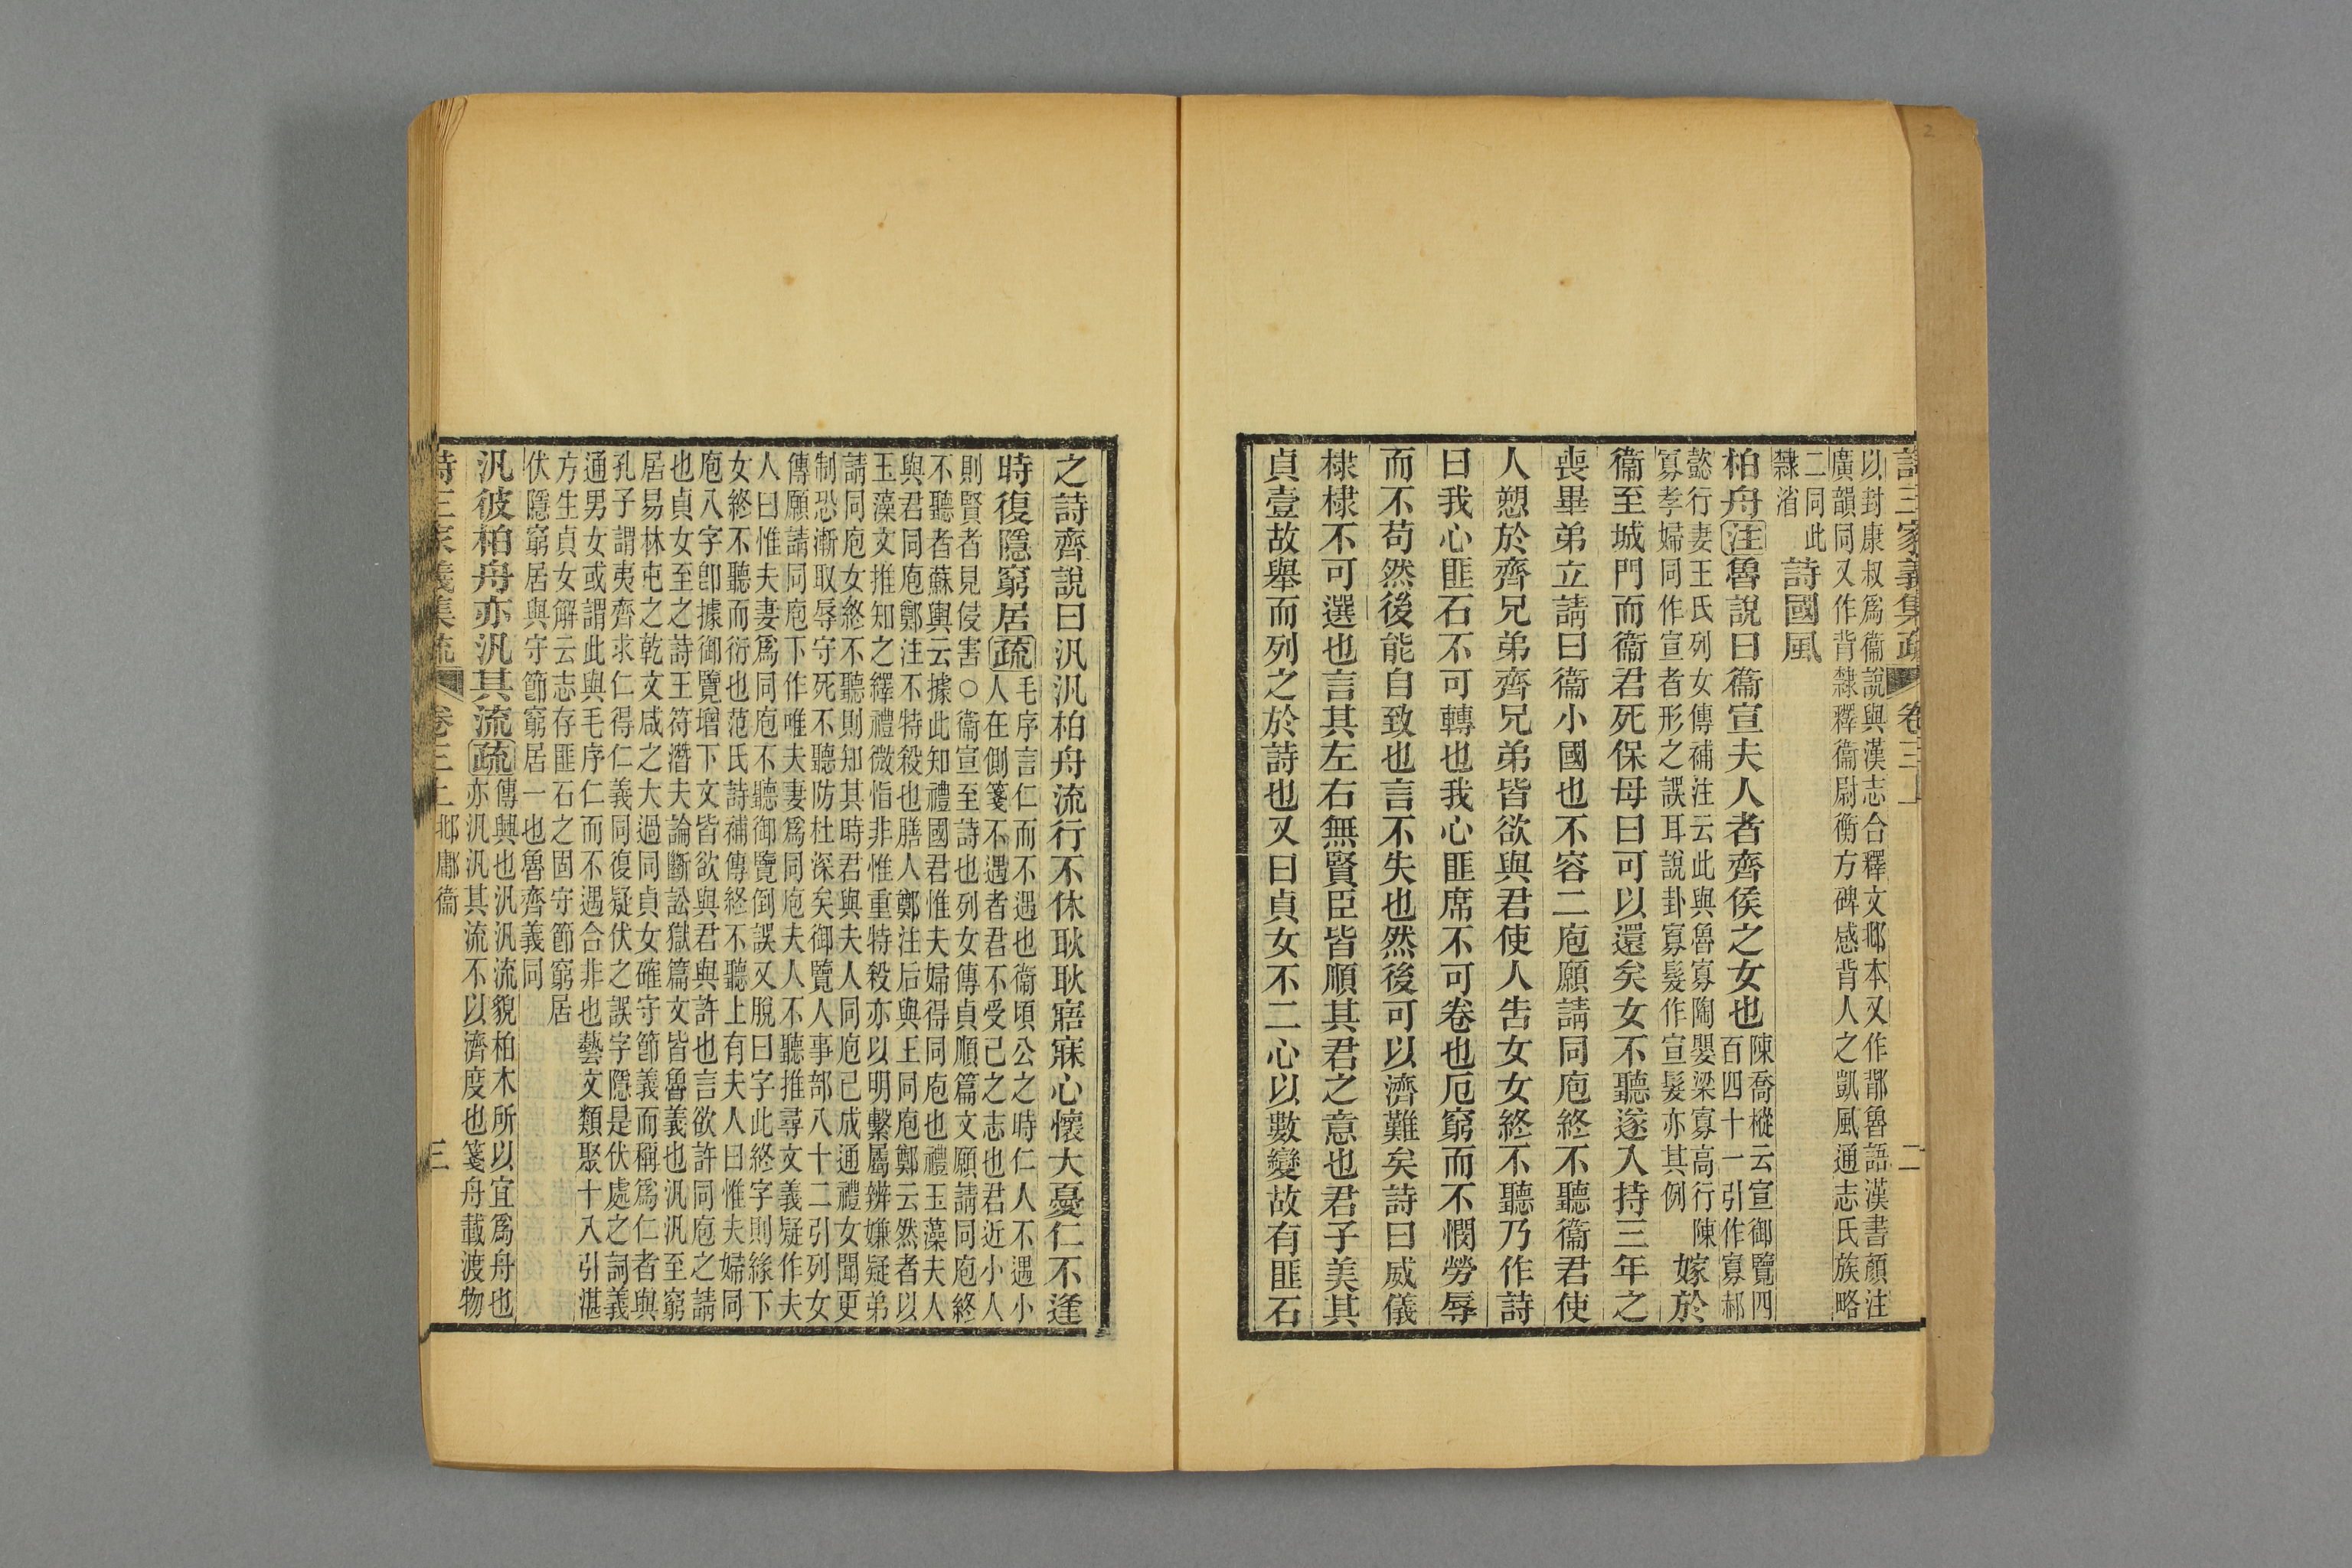 詩三家義集疏 卷三上 二
以封康叔爲衞說與漢志合釋文邶本又作鄁魯語漢書顏注
廣韻同又作背隸釋衞尉衡方碑感背人之凱風通志氏族略
二同此
隸省
詩國風
柏舟注魯說曰衞宣夫人者齊侯之女也陳喬樅云宣御覽四
百四十一引作寡郝
懿行妻王氏列女傳補注云此與魯寡陶嬰梁寡高行陳
寡孝婦同作宣者形之誤耳說卦寡髮作宣髮亦其例
嫁於
衞至城門而衞君死保母曰可以還矣女不聽遂入持三年之
喪畢弟立請曰衞小國也不容二庖願請同庖終不聽衞君使
人愬於齊兄弟齊兄弟皆欲與君使人告女女終不聽乃作詩
曰我心匪石不可轉也我心匪席不可卷也厄窮而不憫勞辱
而不苟然後能自致也言不失也然後可以濟難矣詩曰威儀
棣棣不可選也言其左右無賢臣皆順其君之意也君子美其
貞壹故舉而列之於詩也又曰貞女不二心以數變故有匪石
之詩齊說曰汎汎柏舟流行不休耿耿寤寐心懷大憂仁不逢
時復隱窮居疏毛序言仁而不遇也衞頃公之時仁人不遇小
人在側箋不遇者君不受己之志也君近小人
則賢者見侵害○衞宣至詩也列女傳貞順篇文願請同庖終
不聽者蘇輿云據此知禮國君惟夫婦得同庖也禮玉藻夫人
與君同庖鄭注不特殺也膳人鄭注后與王同庖鄭云然者以
玉藻文推知之繹禮微恉非惟重特殺亦以明繫屬辨嫌疑弟
請同庖女終不聽則知其時君與夫人同庖已成通禮女聞更
制恐漸取辱守死不聽防杜深矣御覽人事部八十二引列女
傳願請同庖下作唯夫妻爲同庖夫人不聽推尋文義疑作夫
人曰惟夫妻爲同庖不聽御覽倒誤又脫曰字此終字則緣下
女終不聽而衍也范氏詩補傳終不聽上有夫人曰惟夫婦同
庖八字卽據御覽增下文皆欲與君與許也言欲許同庖之請
也貞女至之詩王符潛夫論斷訟獄篇文皆魯義也汎汎至窮
居易林屯之乾文咸之大過同貞女確守節義而稱爲仁者與
孔子謂夷齊求仁得仁義同復疑伏之誤字隱是伏處之詞義
通男女或謂此與毛序仁而不遇合非也藝文類聚十八引湛
方生貞女解云志存匪石之固守節窮居
伏隱窮居與守節窮居一也魯齊義同
汎彼柏舟亦汎其流疏傳興也汎汎流貌柏木所以宜爲舟也
亦汎汎其流不以濟度也箋舟載渡物
詩三家義集疏 卷三上邶鄘衞 三